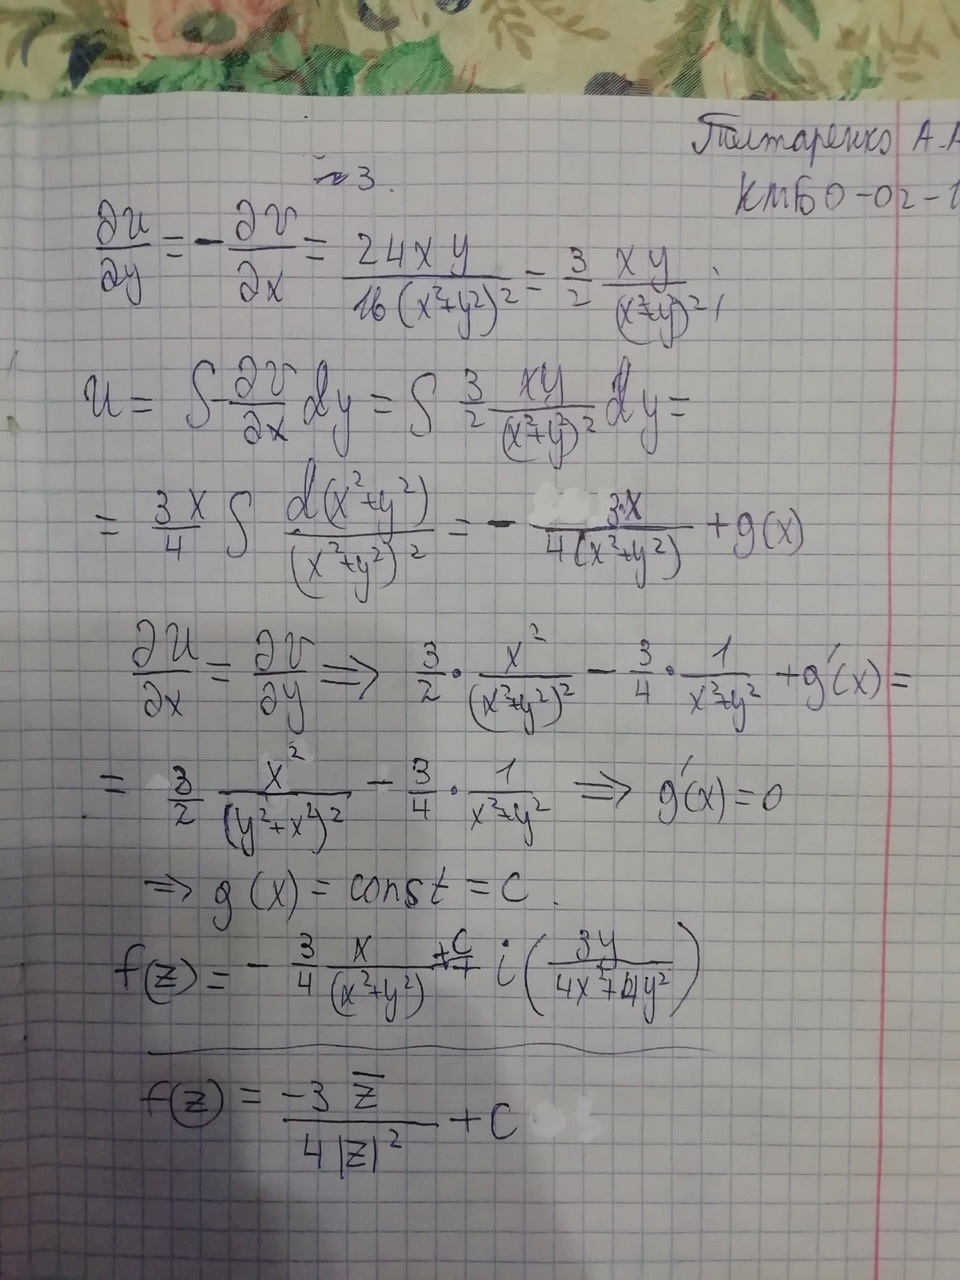 Полтаренко А.А
№3. КМБО-02-1
∂u/∂y = -∂v/∂x = 24xy/16(x²+y²)² = 3/2 xy/(x²+y²)²;
u = ∫-∂v/∂x dy = ∫ 3/2 xy/(x²+y²)² dy =
= 3x/4 ∫ d(x²+y²)/(x²+y²)² = - 3·x/4(x²+y²) + g(x)
∂u/∂x = ∂v/∂y ⇒ 3/2 · x²/(x²+y²)² - 3/4 · 1/x²+y² + g'(x) =
= 3/2 x²/(y²+x²)² - 3/4 · 1/x²+y² ⇒ g'(x) = 0
⇒ g(x) = const = C.
f(z) = - 3/4 x/(x²+y²) + C + i(3y/4x²+4y²)
f(z) = -3z̅/4|z|² + C